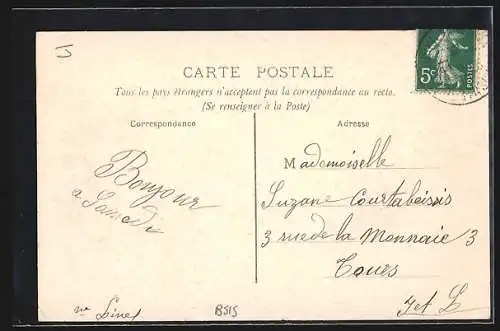 5c POSTES
CARTE POSTALE
Tous les pays étrangers n'acceptent pas la correspondance au recto.
(Se renseigner à la Poste)
Correspondance
Adresse
Bonjour
a Samedi
Mademoiselle
Suzane Courtabeissis
3 rue de la Monnaie 3
Tours
Jet L
BS15